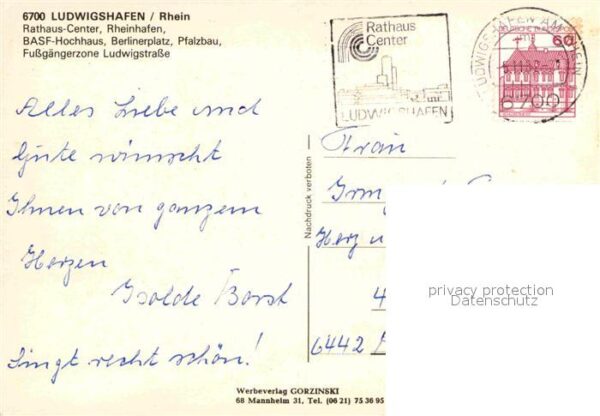 6700 LUDWIGSHAFEN / Rhein
Rathaus-Center, Rheinhafen,
BASF-Hochhaus, Berlinerplatz, Pfalzbau,
Fußgängerzone Ludwigstraße
Alles Liebe und
Gute wünscht
Ihnen von ganzem
Herzen
Isolde Borst
Singt recht schön!
Nachdruck verboten
Rathaus
Center
LUDWIGSHAFEN
LUDWIGSHAFEN AM RHEIN
6700
60
Frau
Herz
4
6442
privacy protection
Datenschutz
Werbeverlag GORZINSKI
68 Mannheim 31, Tel. (06 21) 75 36 95